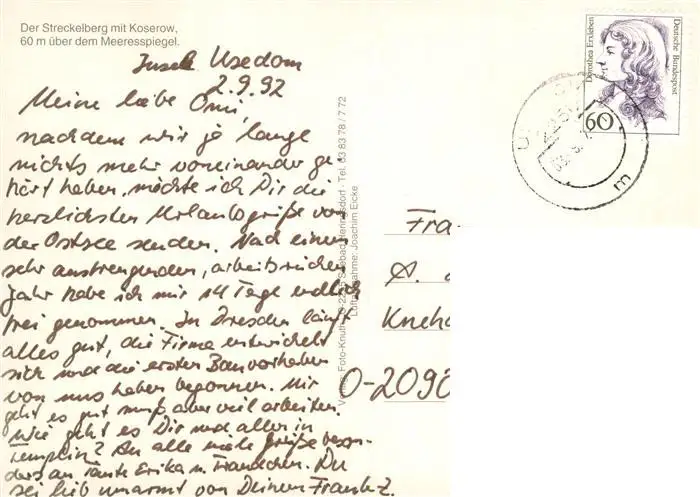 Der Streckelberg mit Koserow,
60 m über dem Meeresspiegel.
Insel Usedom
2.9.92
Meine liebe Omi,
nachdem wir ja lange
nichts mehr voneinander ge-
hört haben, möchte ich Dir die
herzlichsten Urlaubsgrüße von
der Ostsee senden. Nach einem
sehr anstrengenden, arbeitsreichen
Jahr habe ich mir 14 Tage endlich
frei genommen. In Dresden läuft
alles gut, die Firma entwickelt
sich und die ersten Bauvorhaben
von uns haben begonnen. Mir
geht es gut muß aber viel arbeiten.
Wie geht es Dir und allen in
Templin? An alle viele Grüße beson-
ders an Tante Erika u. Frauchen. Du
sei lieb umarmt von Deinem Frank Z.
Foto-Knuth · Seebad Heringsdorf · Tel. 83 83 78 / 7 72
Luftaufnahme: Joachim Eicke
Dorothea Erxleben
Deutsche Bundespost
60
Fra
A.
Kneh
O-2090